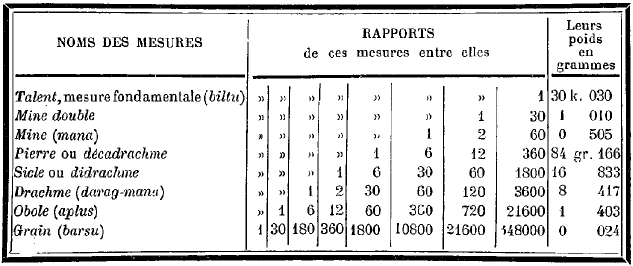 NOMS DES MESURES
RAPPORTS
de ces mesures entre elles
Leurs
poids
en
grammes
Talent, mesure fondamentale (biltu) » » » » » » » 1 30 k. 030
Mine double » » » » » » 1 30 1 010
Mine (mana) » » » » » 1 2 60 0 505
Pierre ou décadrachme » » » » 1 6 12 360 84 gr. 166
Sicle ou didrachme » » » 1 6 30 60 1800 16 833
Drachme (darag-mana) » » 1 2 30 60 120 3600 8 417
Obole (aplus) » 1 6 12 60 360 720 21600 1 403
Grain (barsu) 1 30 180 360 1800 10800 21600 648000 0 024